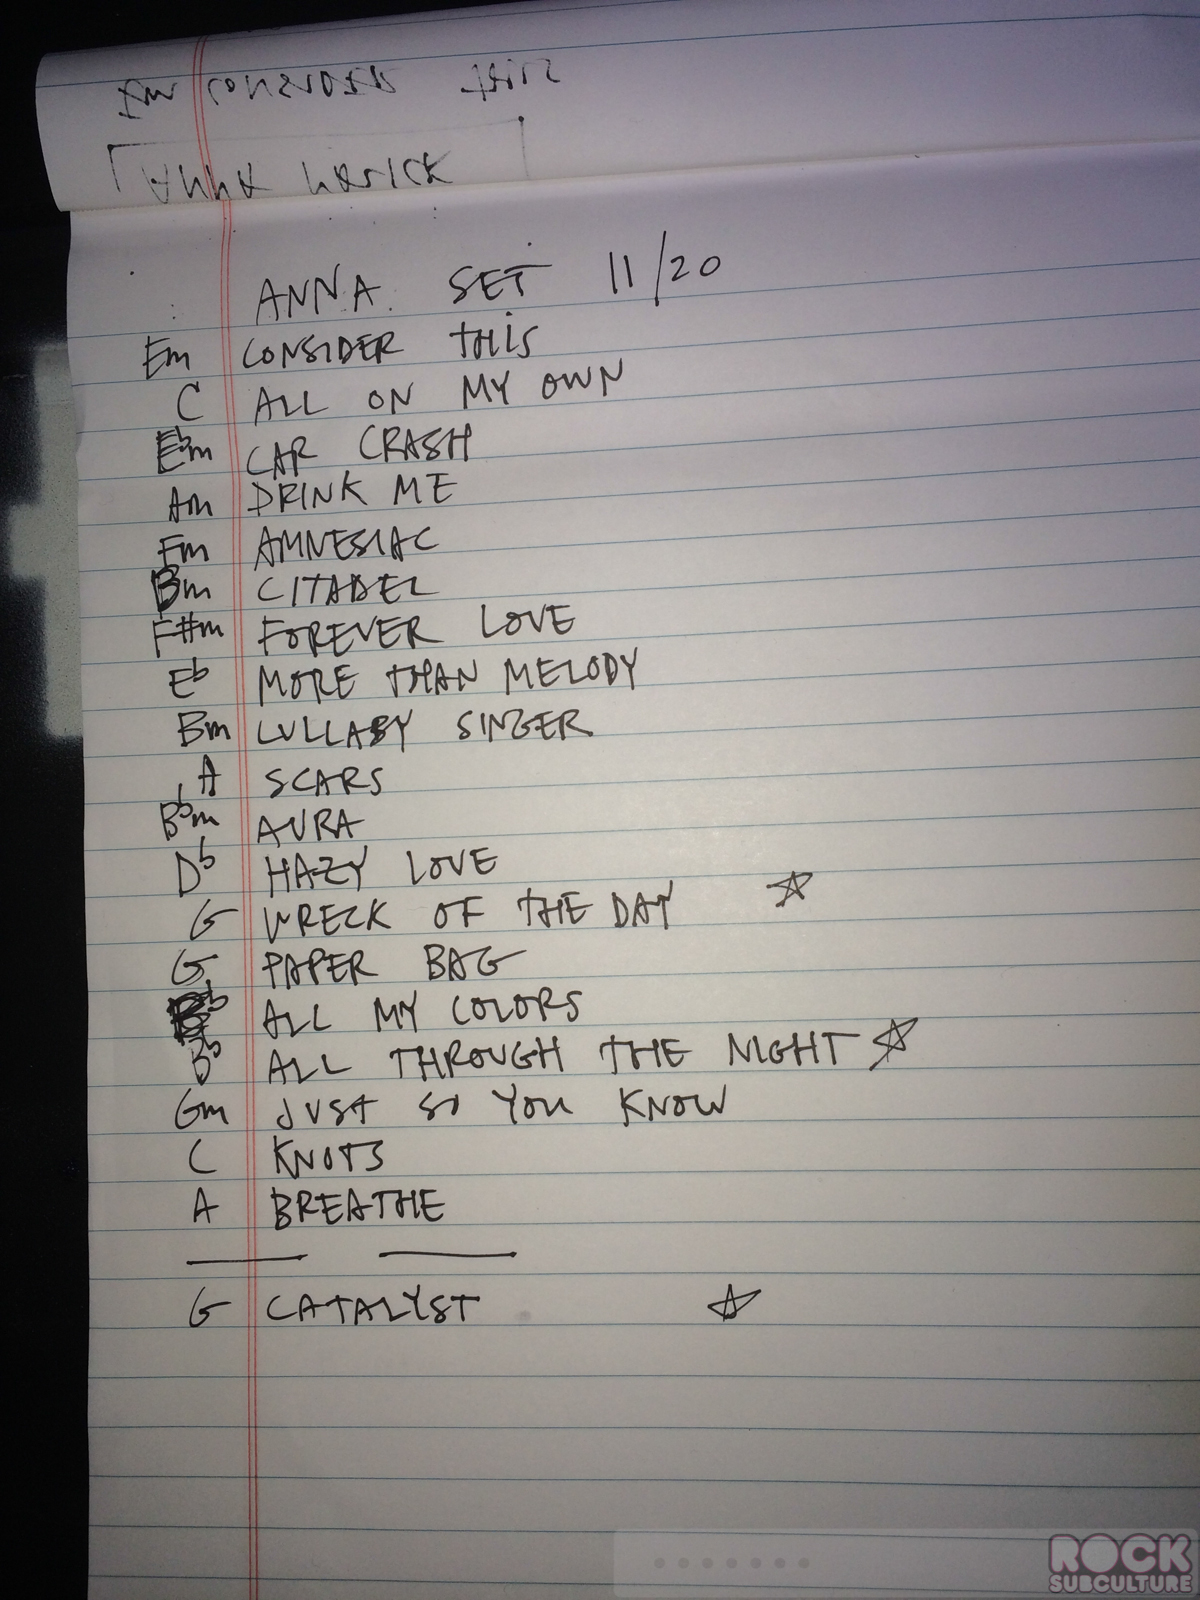 ANNA SET 11/20
Em CONSIDER THIS
C ALL ON MY OWN
Ebm CAR CRASH
Am DRINK ME
Em AMNESIAC
Bm CITADEL
F#m FOREVER LOVE
Eb MORE THAN MELODY
Bm LULLABY SINGER
A SCARS
Bbm AURA
Db HAZY LOVE
G WRECK OF THE DAY ☆
G PAPER BAG
Bb ALL MY COLORS
Bb ALL THROUGH THE NIGHT ☆
Gm JUST SO YOU KNOW
C KNOTS
A BREATHE
G CATALYST ☆
ROCK
SUBCULTURE